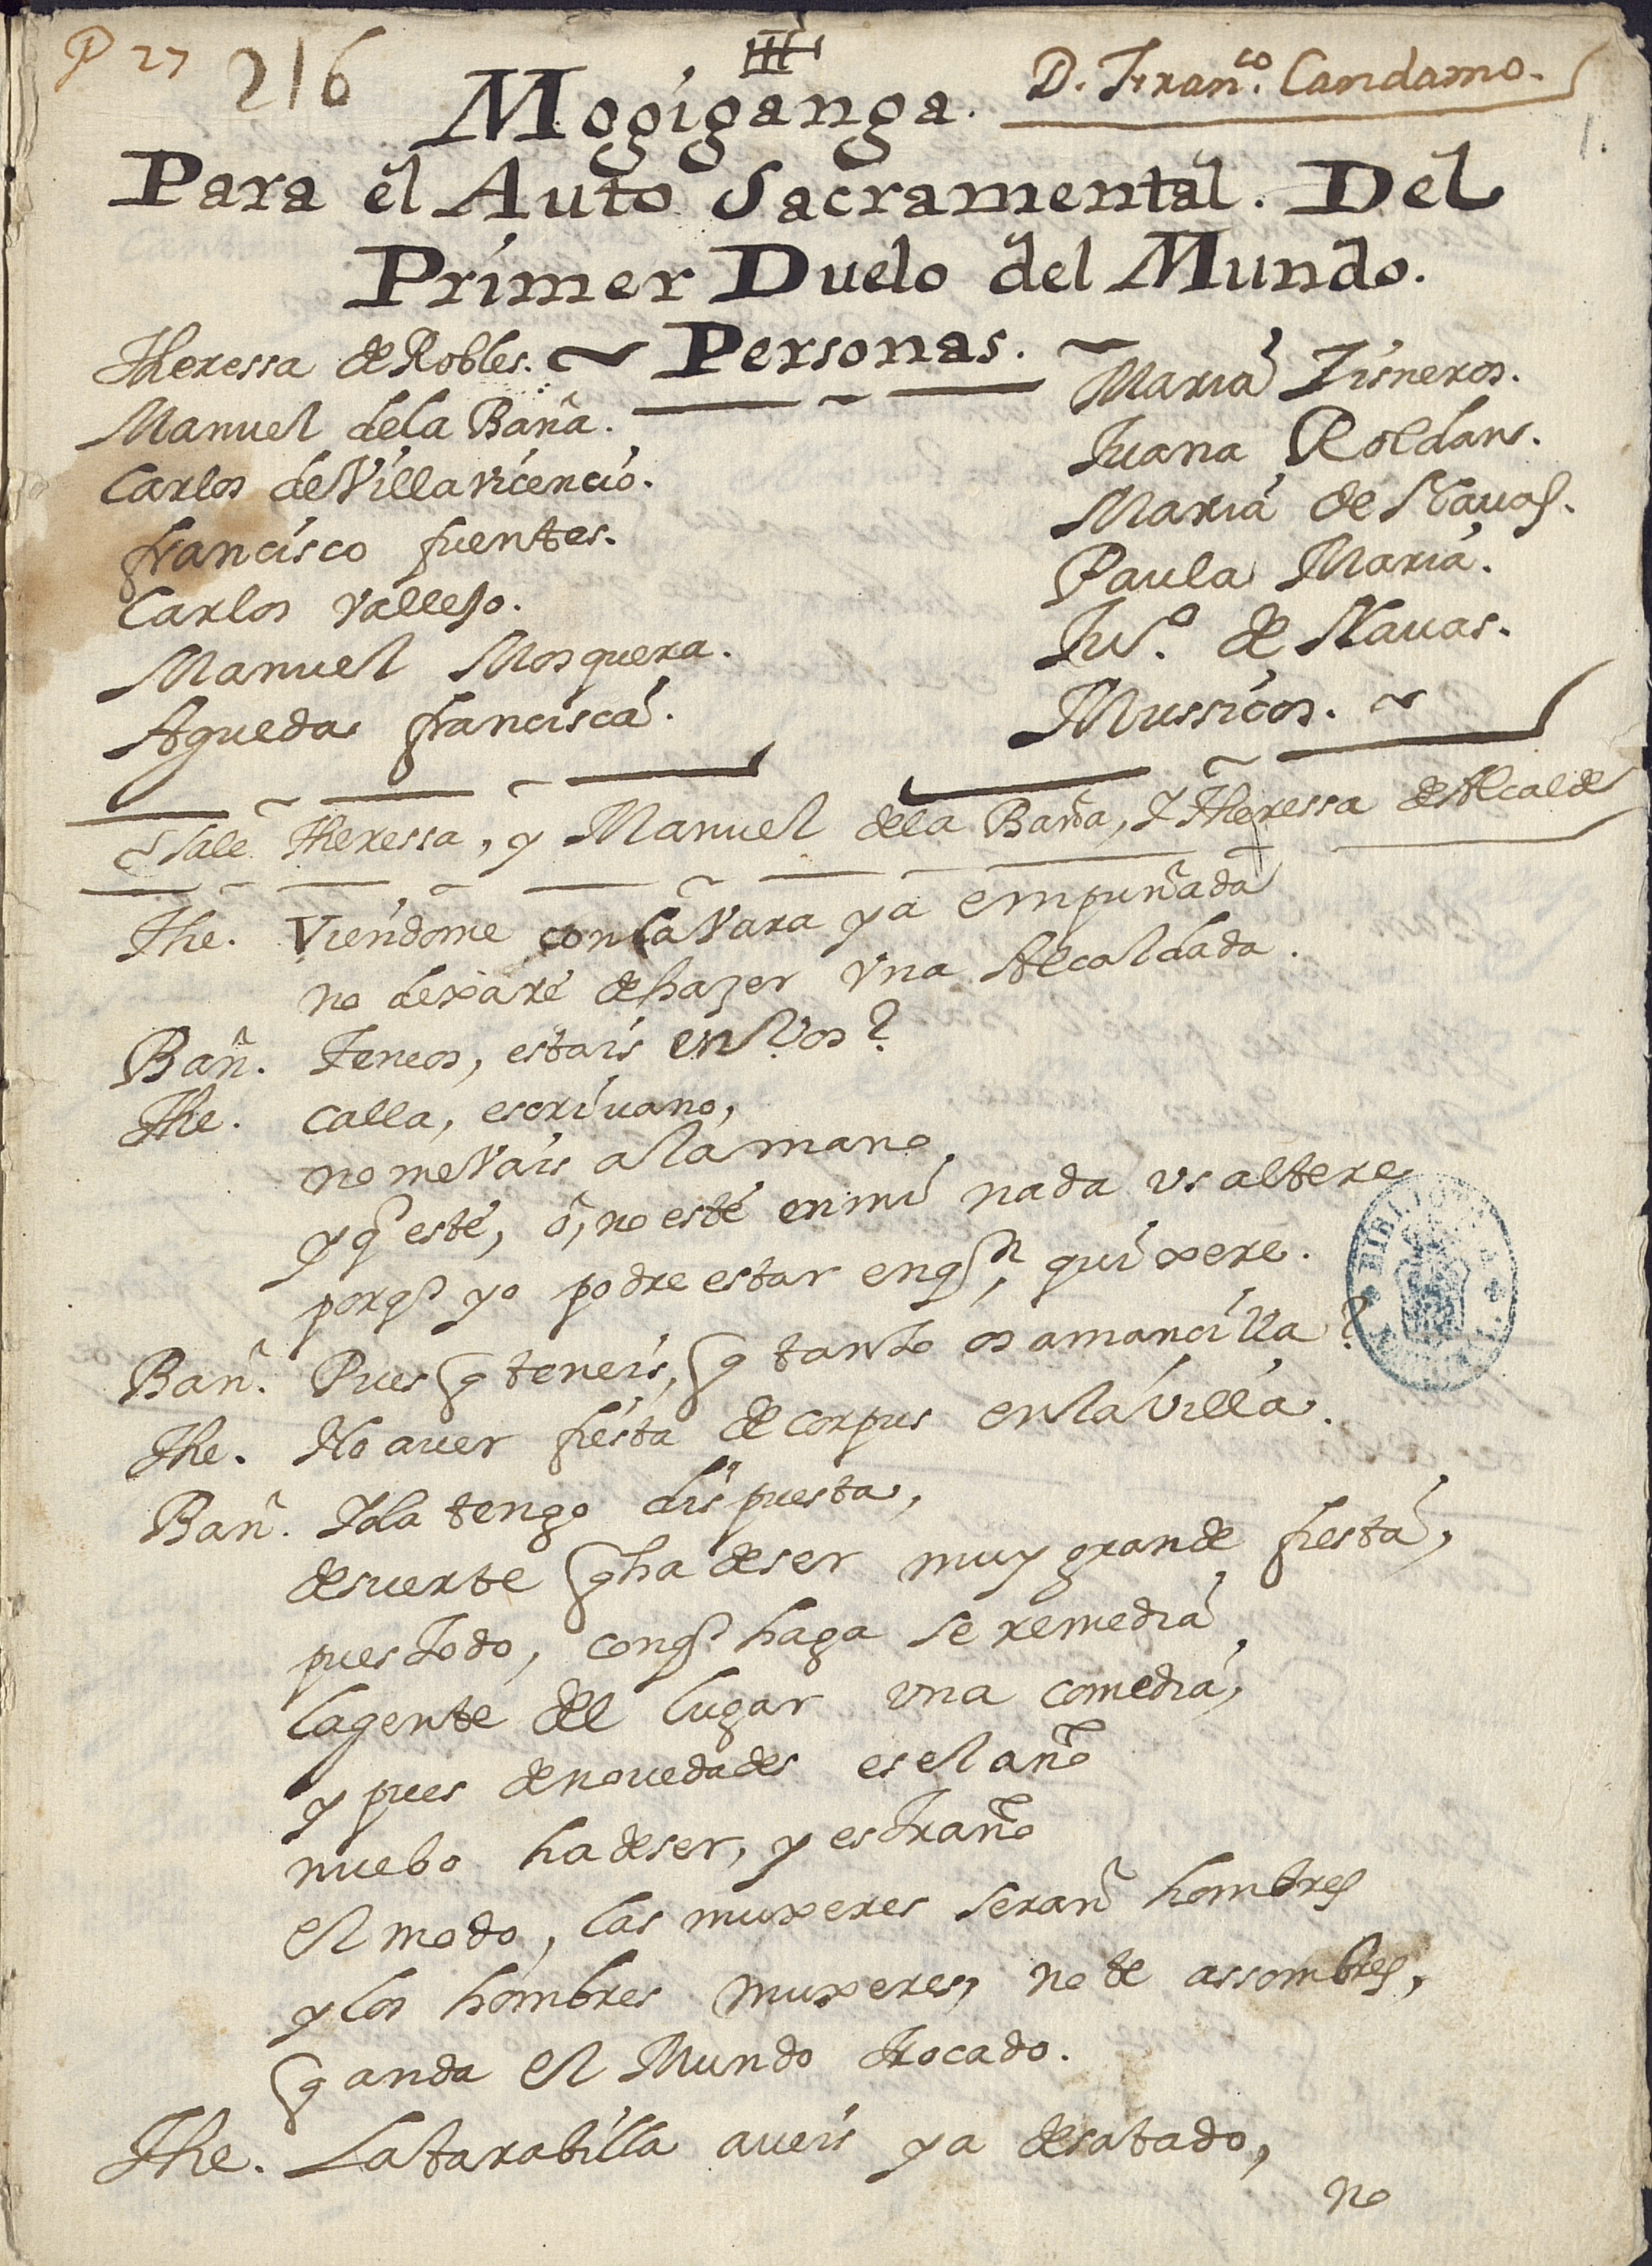 P 27
216
D. Fran.co Candamo.
1.
Mogiganga.
Para el Auto Sacramental. Del
Primer Duelo del Mundo.
Personas.
Theressa de Robles.
Manuel dela Baña.
Carlos de Villavicencio.
francisco fuentes.
Carlos Vallejo.
Manuel Mosquera.
Agueda francisca.
Maria Zisneros.
Juana Roldan.
Maria de Nauas.
Paula Maria.
Ju.o de Nauas.
Mussicos.
Sale Theressa, y Manuel dela Baña, Y Theressa de Alcalde
The. Viendome con la Vara ya empuñada
no dexaré de hazer vna Alcaldada.
Bañ. Teneos, estais en Vos?
The. calla, escriuano,
no me Vais a la mano
y q esté, ó, no esté en mi nada vs altere
porq yo podre estar en qn quixere.
Bañ. Pues q teneis, q tanto os amancilla?
The. No auer fiesta de corpus en la villa.
Bañ. Yo la tengo dispuesta,
de suerte q ha de ser muy grande fiesta,
pues todo, con q haga se remedia
la gente del lugar vna comedia,
y pues de nouedades es el año
nuebo ha de ser, y estraño
el modo, las muxeres seran hombres
y los hombres muxeres, no te assombres,
q anda el Mundo trocado.
The. La tarabilla aueis ya desatado,
no